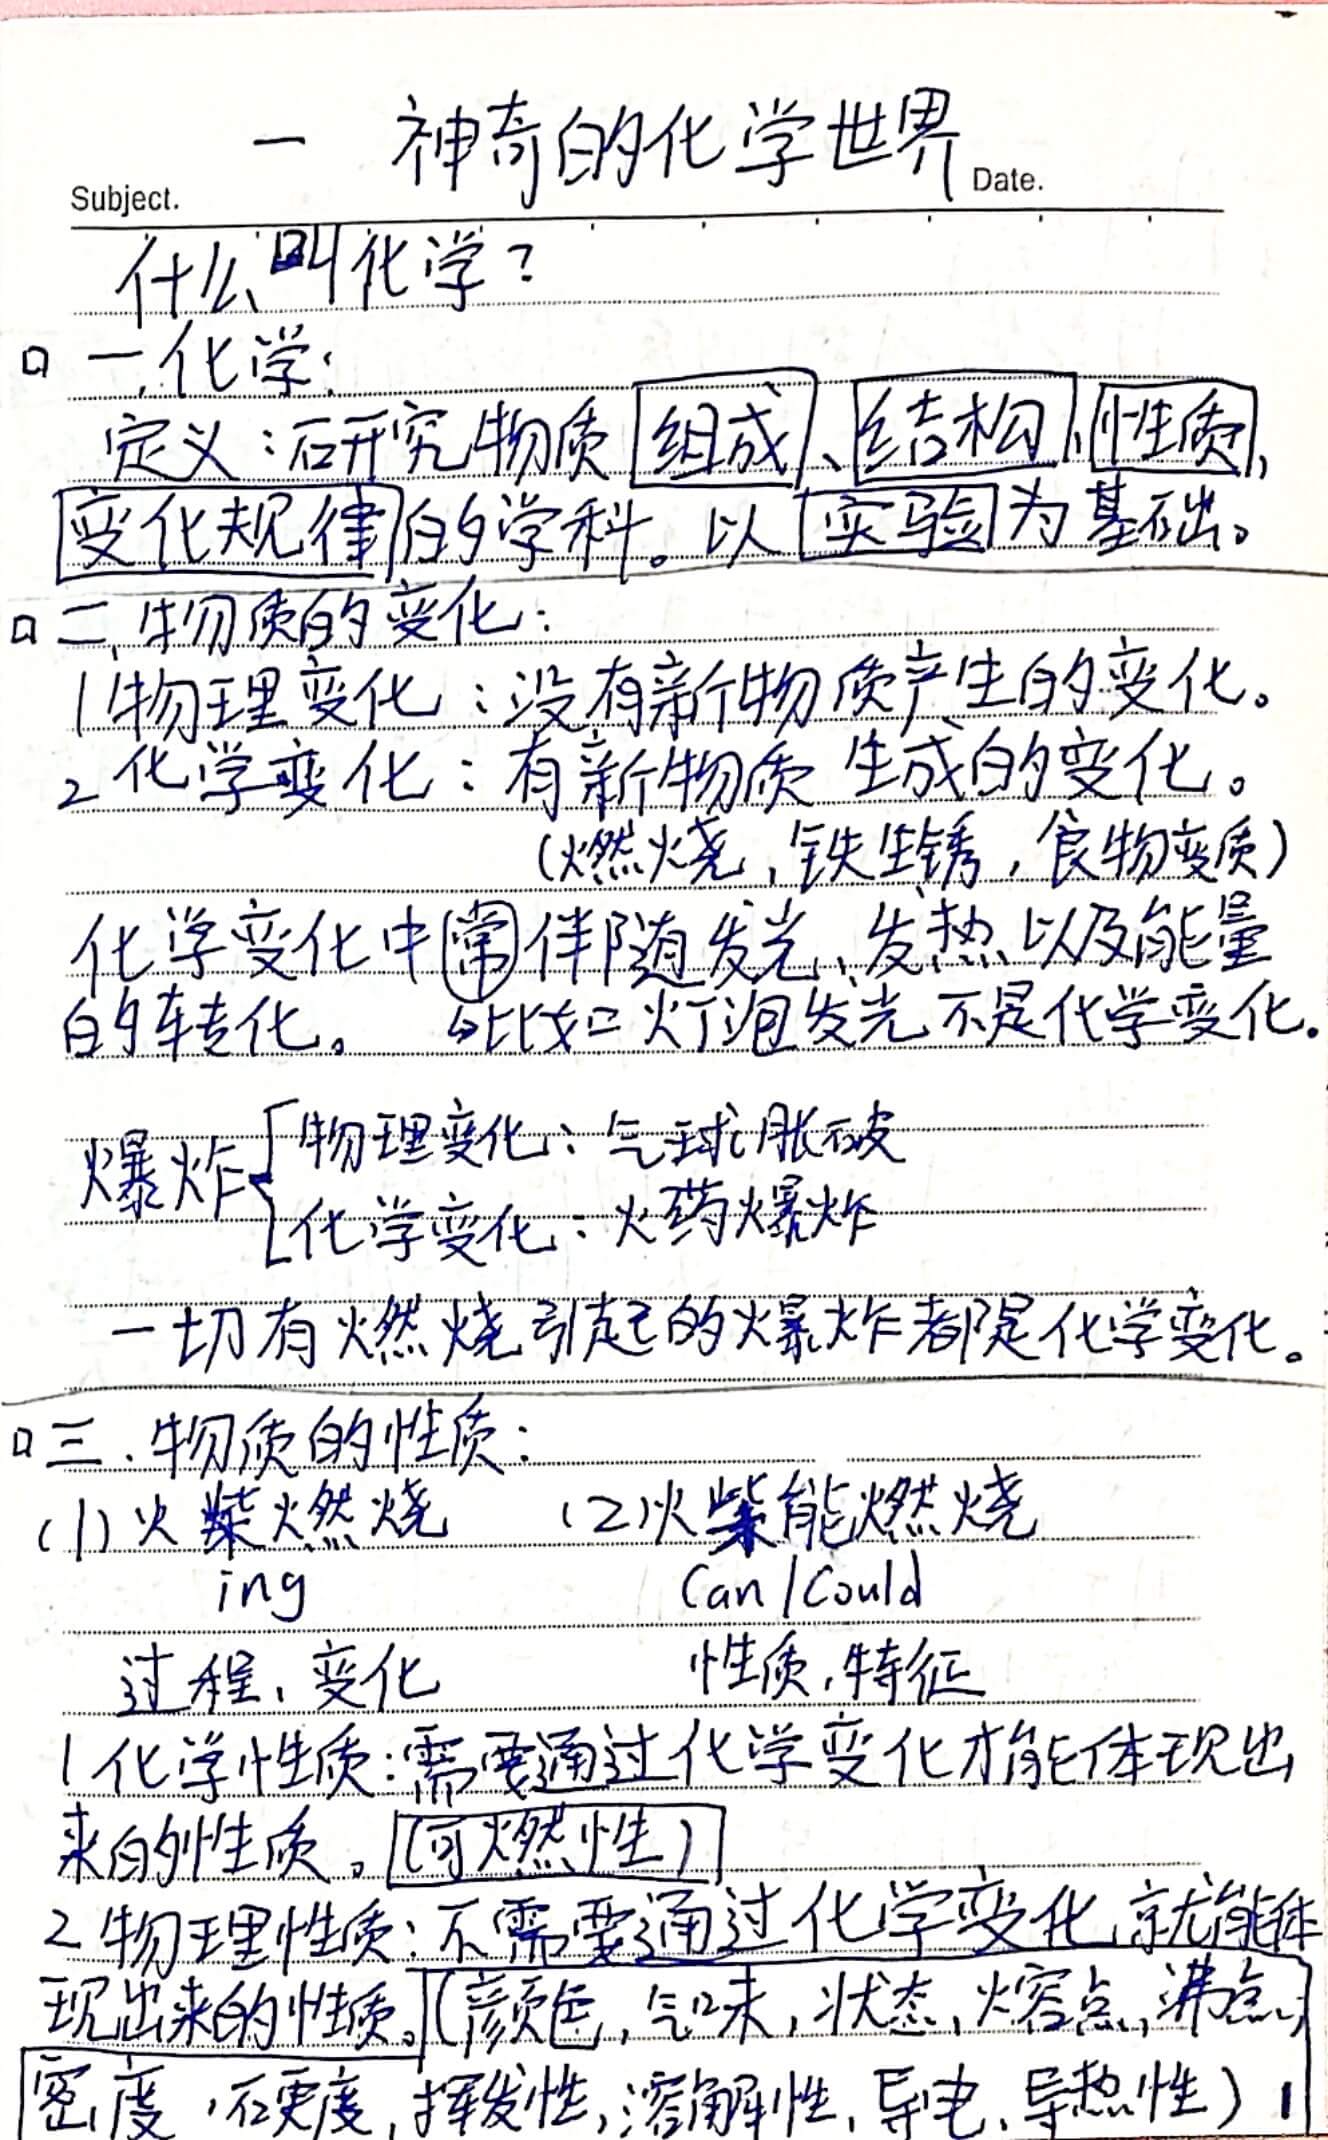 一 神奇的化学世界
Subject.
Date.
什么叫化学？
一、化学：
定义：研究物质组成、结构、性质、
变化规律的学科。以实验为基础。
二、物质的变化：
1 物理变化：没有新物质产生的变化。
2 化学变化：有新物质生成的变化。
(燃烧，铁生锈，食物变质)
化学变化中常伴随发光、发热以及能量
的转化。 比如灯泡发光不是化学变化.
爆炸 物理变化：气球胀破
化学变化：火药爆炸
一切有燃烧引起的爆炸都是化学变化。
三.物质的性质：
(1)火柴燃烧 (2)火柴能燃烧
ing Can/Could
过程、变化 性质,特征
1 化学性质：需要通过化学变化才能体现出
来的性质。(可燃性)
2 物理性质：不需要通过化学变化就能体
现出来的性质。(颜色，气味，状态，熔点，沸点，
密度，硬度，挥发性，溶解性、导电、导热性)